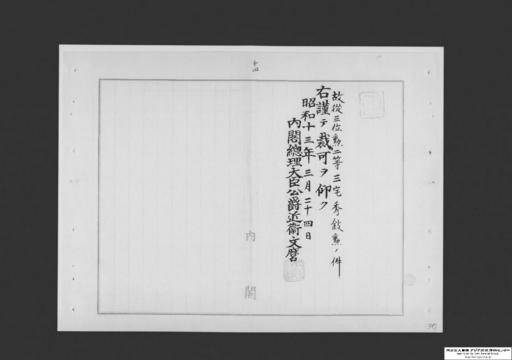 故從三位勲二等三宅秀敍勲ノ件
右謹テ裁可ヲ仰ク
昭和十三年三月二十四日
內閣總理大臣公爵近衞文麿
內閣